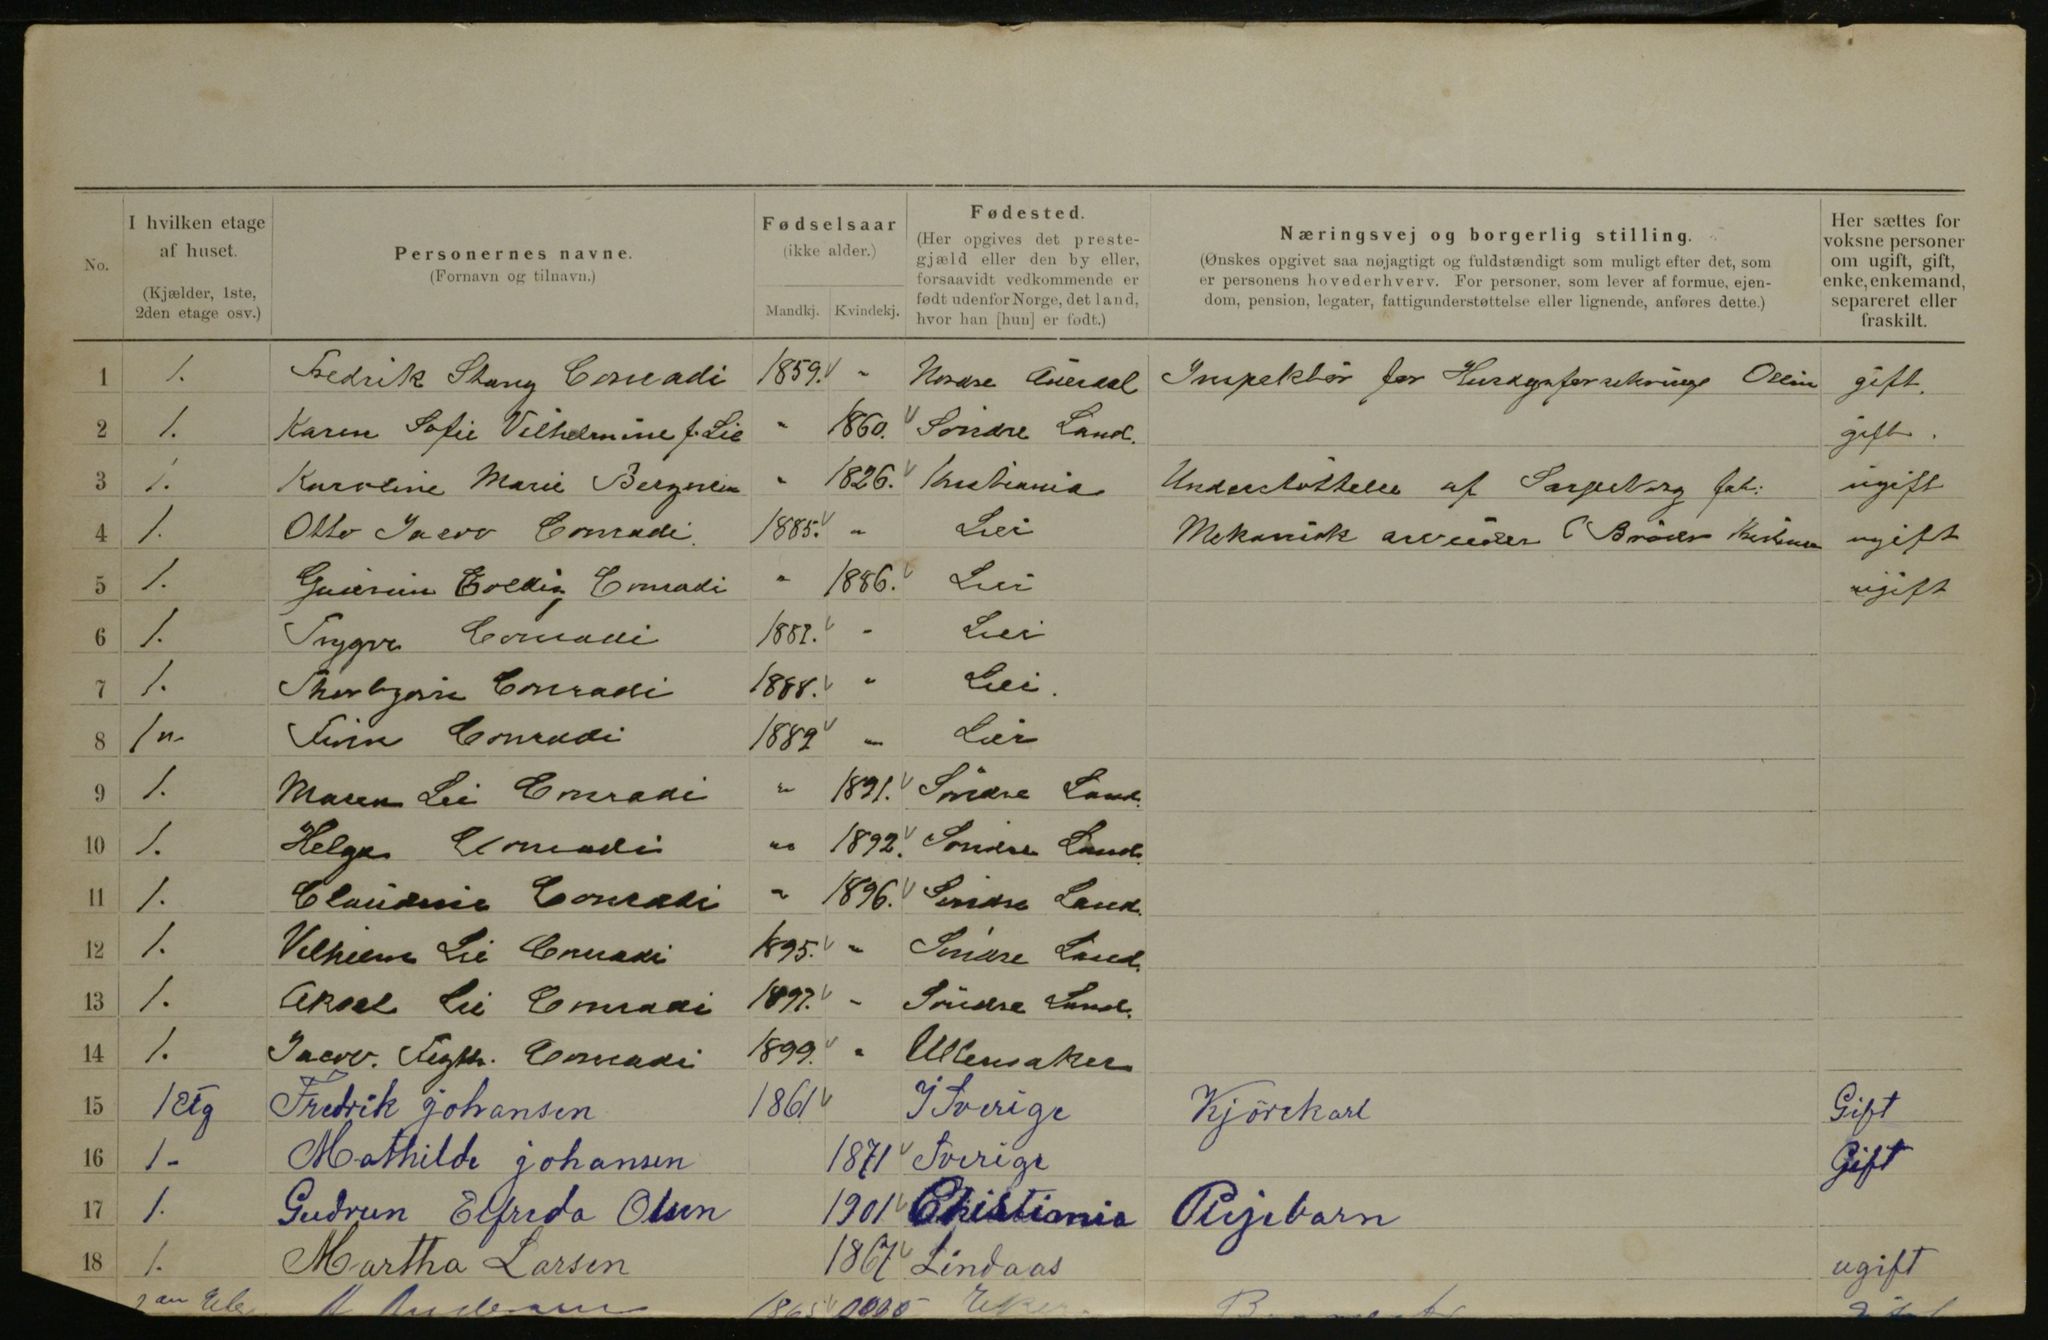 No.
I hvilken etage
af huset.
(Kjælder, 1ste,
2den etage osv.)
Personernes navne.
(Fornavn og tilnavn.)
Fødselsaar
(ikke alder.)
Mandkj. Kvindekj.
Fødested.
(Her opgives det preste-
gjæld eller den by eller,
forsaavidt vedkommende er
født udenfor Norge, det land,
hvor han [hun] er født.)
Næringsvej og borgerlig stilling.
(Ønskes opgivet saa nøjagtigt og fuldstændigt som muligt efter det, som
er personens hovederhverv. For personer, som lever af formue, ejen-
dom, pension, legater, fattigunderstøttelse eller lignende, anføres dette.)
Her sættes for
voksne personer
om ugift, gift,
enke, enkemand,
separeret eller
fraskilt.
1 1. Fredrik Stang Conradi 1859. " Nordre Inspektör for gift.
2 1. Karen Sofie Vilhelmine f. Lie " 1860. Söndre Land. gift.
3 1. Karoline Marie " 1826. Kristiania Understöttelse af Sarpsborg fat: ugift
4 1. Otto Jacob Conradi. 1885. " Lier Mekanisk arbeider Bröder ugift
5 1. Gudrun Conradi " 1886. Lier ugift
6 1. Trygve Conradi 1887. " Lier
7 1. Thorbjørn Conradi 1888. " Lier.
8 1 " Finn Conradi 1889 " Lier
9 1. Maren Lie Conradi " 1891. Söndre Land.
10 1. Helga Conradi " 1892. Söndre Land.
11 1. Claudine Conradi " 1896. Söndre Land.
12 1. Vilhelm Lie Conradi 1895. " Söndre Land.
13 1. Aksel Lie Conradi 1897. " Söndre Land.
14 1. Jacob. Conradi 1899. " Ullensaker
15 1 Etg Fredrik johansen 1861 I Sverige Kjörekarl Gift
16 1 - Mathilde johansen 1871 Sverige Gift
17 1. Gudrun Elfrida Olsen 1901 Christiania Plejebarn
18 1. Martha Larsen 1867 Lindaas ugift
1865